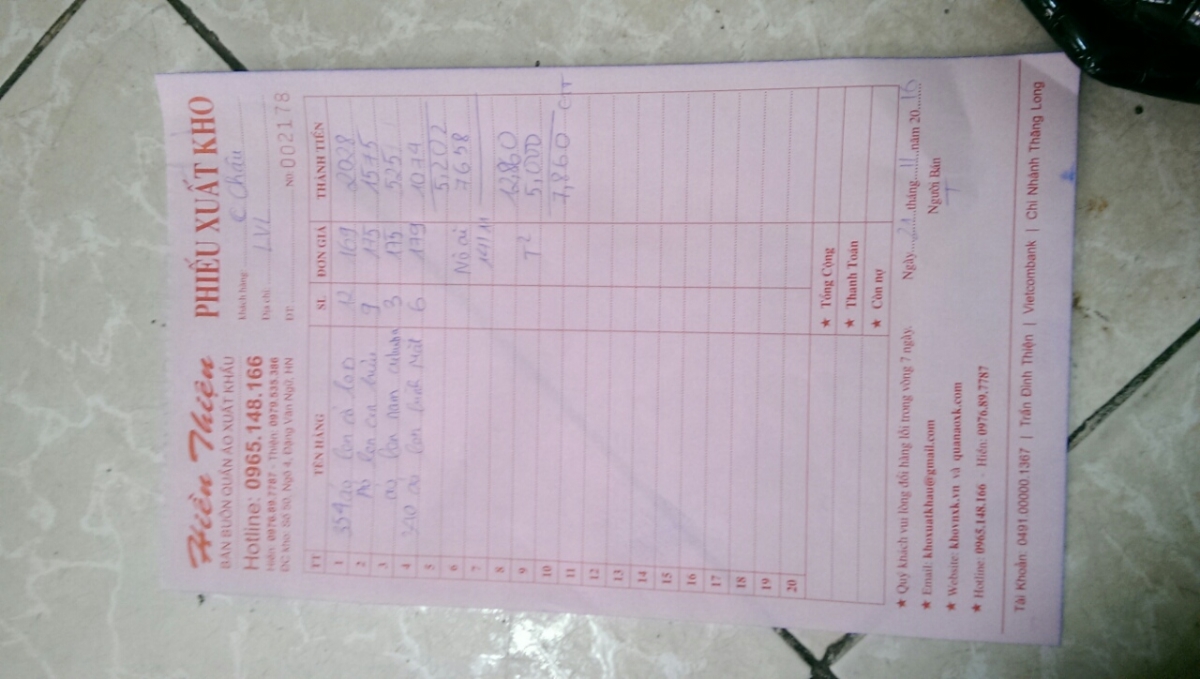 Hiền Thiện
BÁN BUÔN QUẦN ÁO XUẤT KHẨU
Hotline: 0965.148.166
Hiền: 0976.89.7787 - Thiện: 0979.535.386
ĐC kho: Số 50, Ngõ 4, Đặng Văn Ngữ, HN
PHIẾU XUẤT KHO
Khách hàng C Châu
Địa chỉ LVL
ĐT: NO 002178
TT TÊN HÀNG SL ĐƠN GIÁ THÀNH TIỀN
1 354 áo len cổ 12 169 2028
2 Áo len 9 175 1575
3 áo len nam 3 175 525
4 320 áo len 6 179 1074
5 5,202
6 Nợ cũ 7658
7
8 12,860
9 T2 5,000
10 7,860
11
12
13
14
15
16
17
18
19
20
★ Tổng Cộng
★ Thanh Toán
★ Còn nợ
★ Quý khách vui lòng đổi hàng lỗi trong vòng 7 ngày.
★ Email: khosuatkhau@gmail.com
★ Website: khovnxk.vn và quanaoxk.com
★ Hotline: 0965.148.166 - Hiền: 0976.89.7787
Ngày 21 tháng 11 năm 20 16
Người Bán
T
Tài Khoản: 0491.00000.1367 | Trần Đình Thiện | Vietcombank | Chi Nhánh Thăng Long